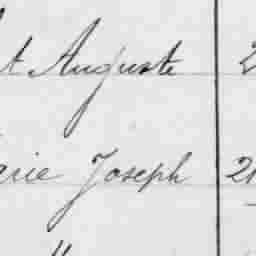 t Auguste 2
arie Joseph 21
"